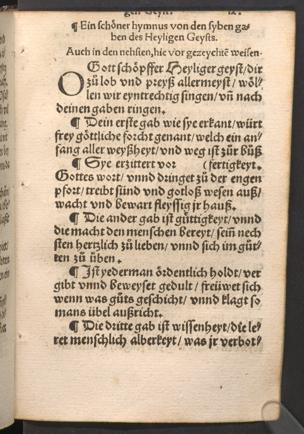 ¶ Ein schöner hymnus von den syben ga⸗
ben des Heyligen Geysts.
Auch in den nehsten, hie vor gezeychẽ weisen.
O Gott schöpffer Heyliger geyst/ dir
zů lob vnd preyß allermeyst/ wöl⸗
len wir eyntrechtig singen/ vñ nach
deinen gaben ringen.
¶ Dein erste gab wie sye erkant/ würt
frey göttliche forcht genant/ welch ein an⸗
fang aller weyßheyt/ vnd weg ist zůr bůß
¶ Sye erzittert vor (fertigkeyt.
Gottes wort/ vnnd dringet zů der engen
pfort/ treibt sünd vnd gotloß wesen auß/
wacht vnd bewart fleyssig jr hauß.
¶ Die ander gab ist gůttigkeyt/ vnnd
die macht den menschen bereyt/ sein nech
sten hertzlich zů lieben/ vnnd sich im gůt⸗
ten zů üben.
¶ Ist yederman ördentlich holdt/ ver
gibt vnnd beweyset gedult/ freüwet sich
wenn was gůts geschicht/ vnnd klagt so
mans übel außricht.
¶ Die dritte gab ist wissenheyt/ die le⸗
ret menschlich alberkeyt/ was jr verbot⸗